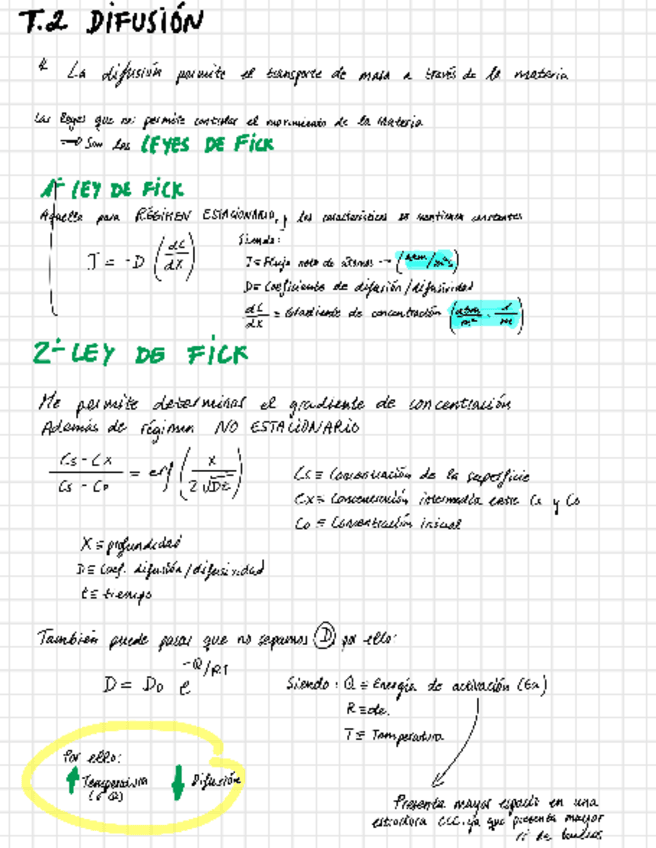 T.2 DIFUSIÓN
* La difusión permite el transporte de masa a través de la materia
Las leyes que me permite controlar el movimiento de la materia
→ Son las LEYES DE FICK
1ª LEY DE FICK
Aquella para RÉGIMEN ESTACIONARIO, y las características se mantienen constantes
J = -D (dC/dX)
Siendo:
J = Flujo neto de átomos → (atom/m²s)
D = Coeficiente de difusión/difusividad
dC/dX = Gradiente de concentración (atom/m³ · 1/m)
2ª LEY DE FICK
Me permite determinar el gradiente de concentración
Además de régimen NO ESTACIONARIO
Cs - Cx / Cs - Co = erf (X / 2√Dt)
Cs ≡ Concentración de la superficie
Cx ≡ Concentración intermedia entre Cs y Co
Co ≡ Concentración inicial
X ≡ profundidad
D ≡ Coef. difusión/difusividad
t ≡ tiempo
También puede pasar que no sepamos D, por ello:
D = Do e^-Q/RT
Siendo: Q ≡ Energía de activación (Ea)
R ≡ cte.
T ≡ Temperatura
Por ello:
↑ Temperatura ↓ Difusión
(ó Q)
Presenta mayor espacio en una
estructura CCC, ya que presenta mayor
nº de huecos